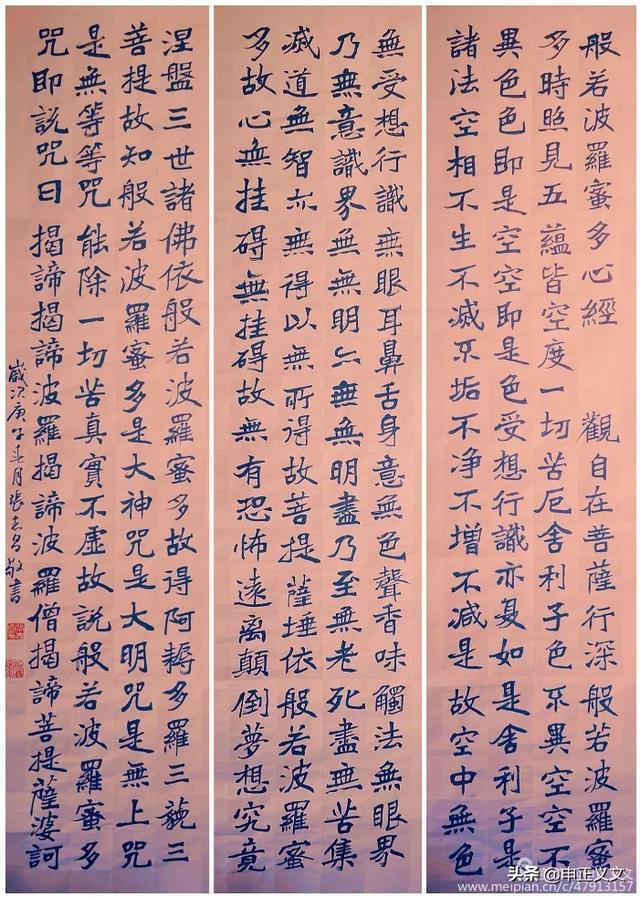 般若波羅蜜多心經 觀自在菩薩行深般若波羅蜜
多時照見五蘊皆空度一切苦厄舍利子色不異空空不
異色色即是空空即是色受想行識亦复如是舍利子是
諸法空相不生不滅不垢不净不增不减是故空中無色
無受想行識無眼耳鼻舌身意無色聲香味觸法無眼界
乃無意識界無無明亦無無明盡乃至無老死盡無苦集
滅道無智亦無得以無所得故菩提薩埵依般若波羅蜜
多故心無挂碍無挂碍故無有恐怖遠离顛倒夢想究竟
涅盤三世諸佛依般若波羅蜜多故得阿耨多羅三藐三
菩提故知般若波羅蜜多是大神咒是大明咒是無上咒
是無等等咒能除一切苦真實不虛故説般若波羅蜜多
咒即説咒曰揭諦揭諦波羅揭諦波羅僧揭諦菩提薩婆訶
歲次庚子春月張敬書
头条 @申正义文
www.meipian.cn/c/47913157